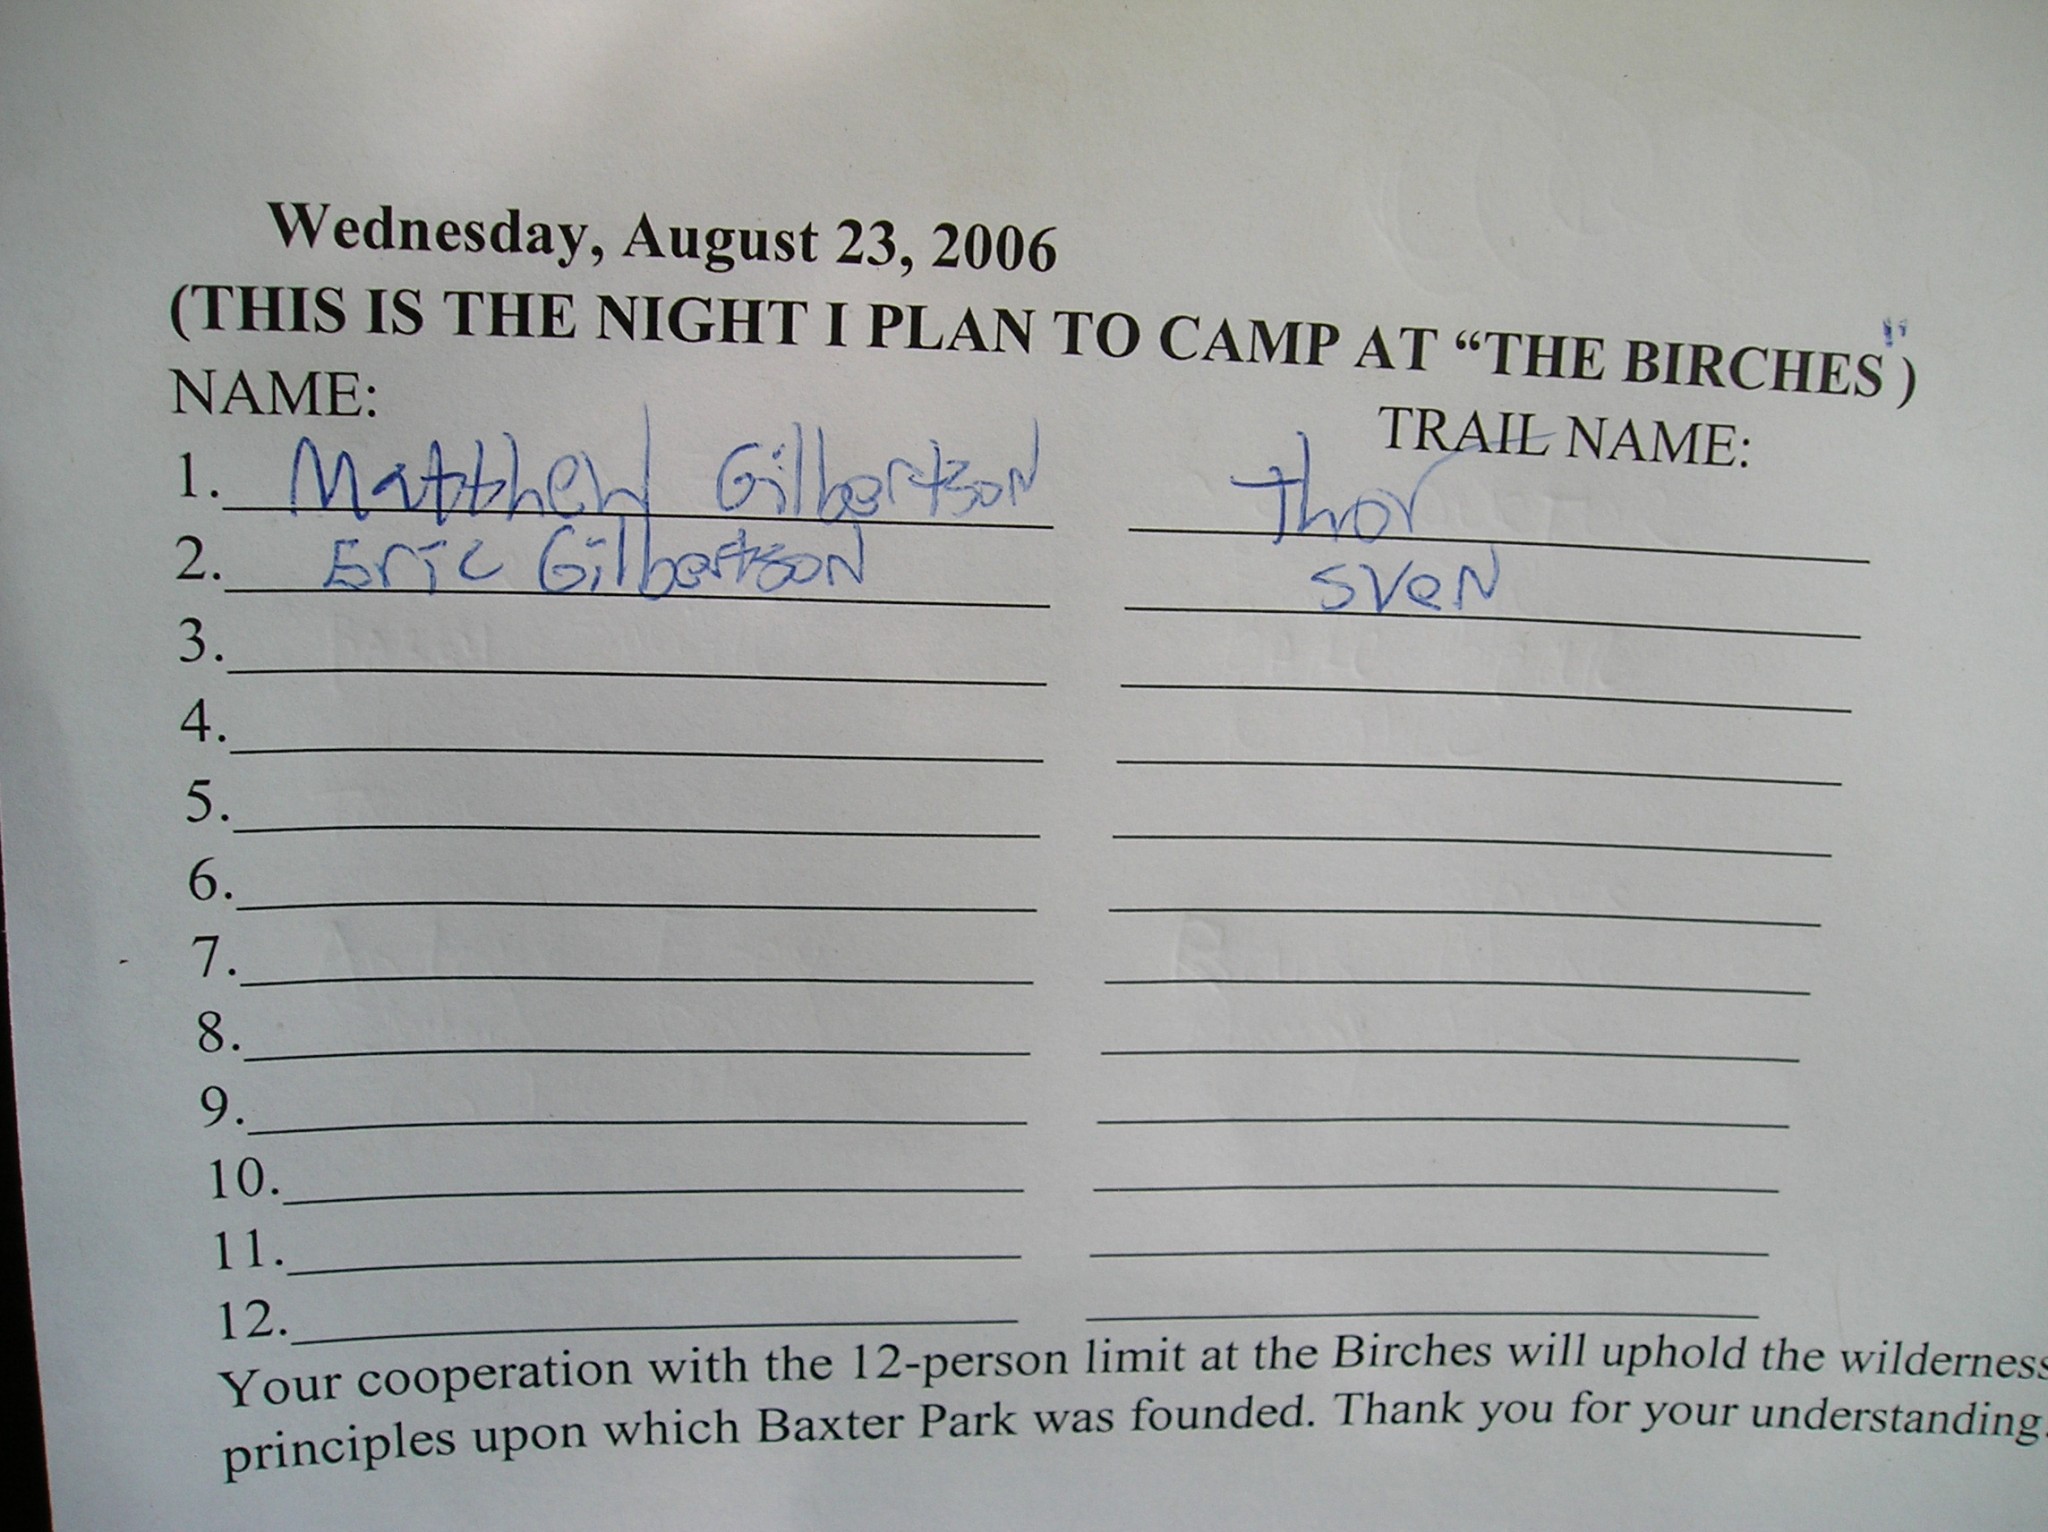 Wednesday, August 23, 2006
(THIS IS THE NIGHT I PLAN TO CAMP AT “THE BIRCHES")
NAME: TRAIL NAME:
1. Matthew Gilbertson Thor
2. Eric Gilbertson Sven
3.
4.
5.
6.
7.
8.
9.
10.
11.
12.
Your cooperation with the 12-person limit at the Birches will uphold the wilderness
principles upon which Baxter Park was founded. Thank you for your understanding.